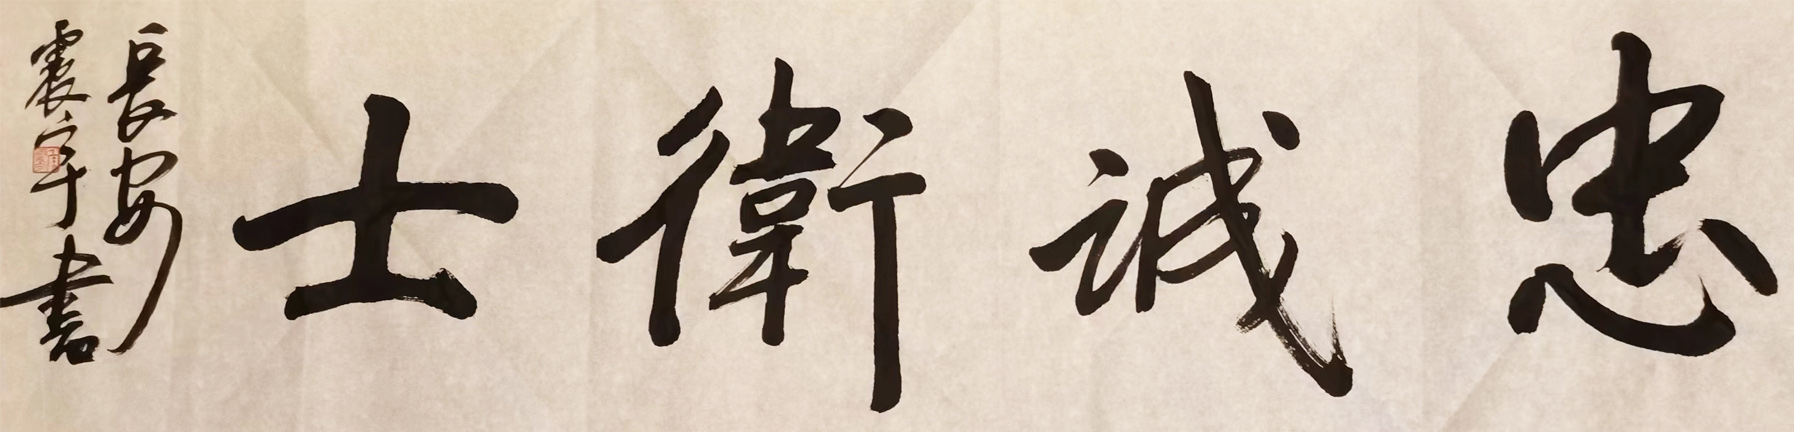 忠誠衛士
長安
震宇書